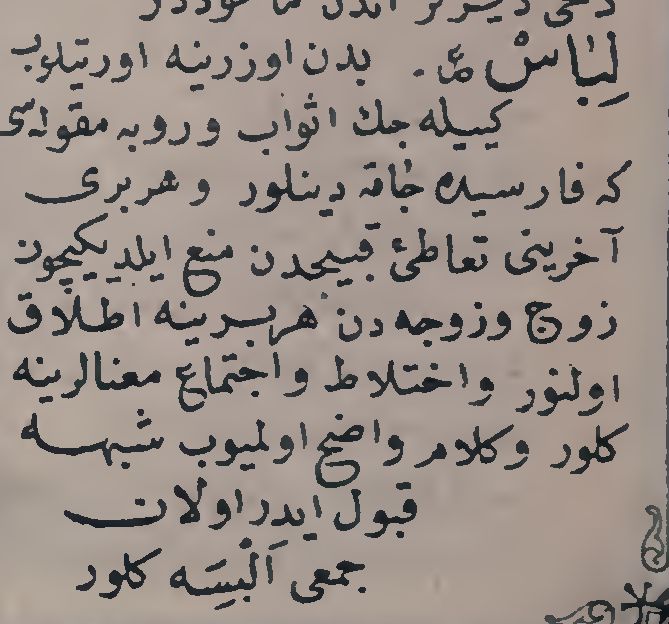 دخى ديرلر اندن
لِبَاسْ ع. بدن اوزرينه اورتيلوب
كييله جك اثواب و روبه مقوله سى
كه فارسيده جامه دينلور و هر برى
آخرينى تعاطئ قبيحدن منع ايلديكيچون
زوج و زوجه دن هر برينه اطلاق
اولنور و اختلاط و اجتماع معنالرينه
كلور و كلام واضح اولميوب شبهه
قبول ايدر اولان
جمعى اَلْبِسَه كلور